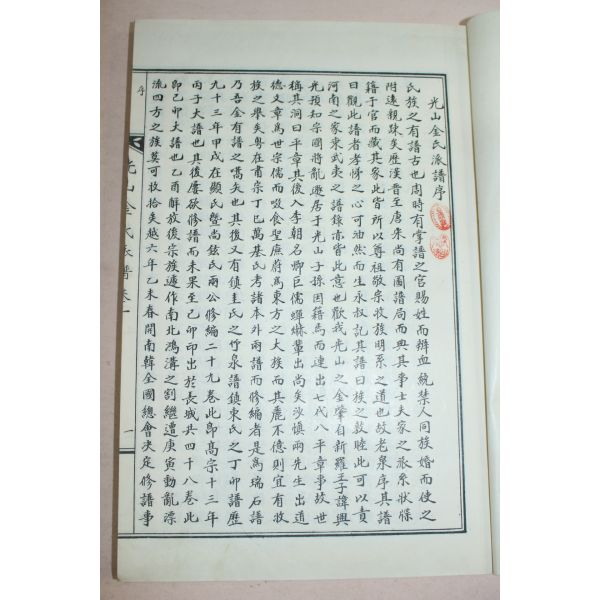 光山金氏派譜序
氏族之有譜古也周時有掌譜之官賜姓而辨血統禁人同族婚而使之
附遠親踈矣歷漢晋至唐宋尚有圖譜局而典其事士夫家之派系狀牒
籍于官而藏其家此皆所以尊祖敬宗收族明系之道也故老泉序其譜
曰觀此譜者孝悌之心可油然而生永叔記其譜曰族之敦睦此可以責
河南之家東武夷之譜錄亦皆此意也歟我光山之金肇自新羅王子諱興
光預知宗國將亂遯居于光山子孫因籍焉而連出七代八平章事故世
稱其洞曰平章其後入李朝名卿巨儒蟬赫輩出尚矣沙慎兩先生出道
德文章爲世宗儒而啜食聖廡蔚爲東方之大族而其麗不億則宜有收
族之擧矣粤在肅宗丁巳萬基氏考諸本外兩譜而修編者是爲瑞石譜
乃吾金有譜之嚆矢也其後又有鎮圭氏之竹泉譜鎮東氏之丁卯譜歷
九十三年甲戌在顯氏曁尚鉉氏兩公修編二十九卷此卽高宗十三年
丙子大譜也其後屢欲修譜而未果至己卯印出於長城共四十八卷此
卽己卯大譜也乙酉解放後宗族遽作南北鴻溝之割繼遭庚寅動亂漂
流四方之族莫可收拾矣越六年乙未春開南韓全國總會决定修譜事
序
光山金氏派譜卷一
一